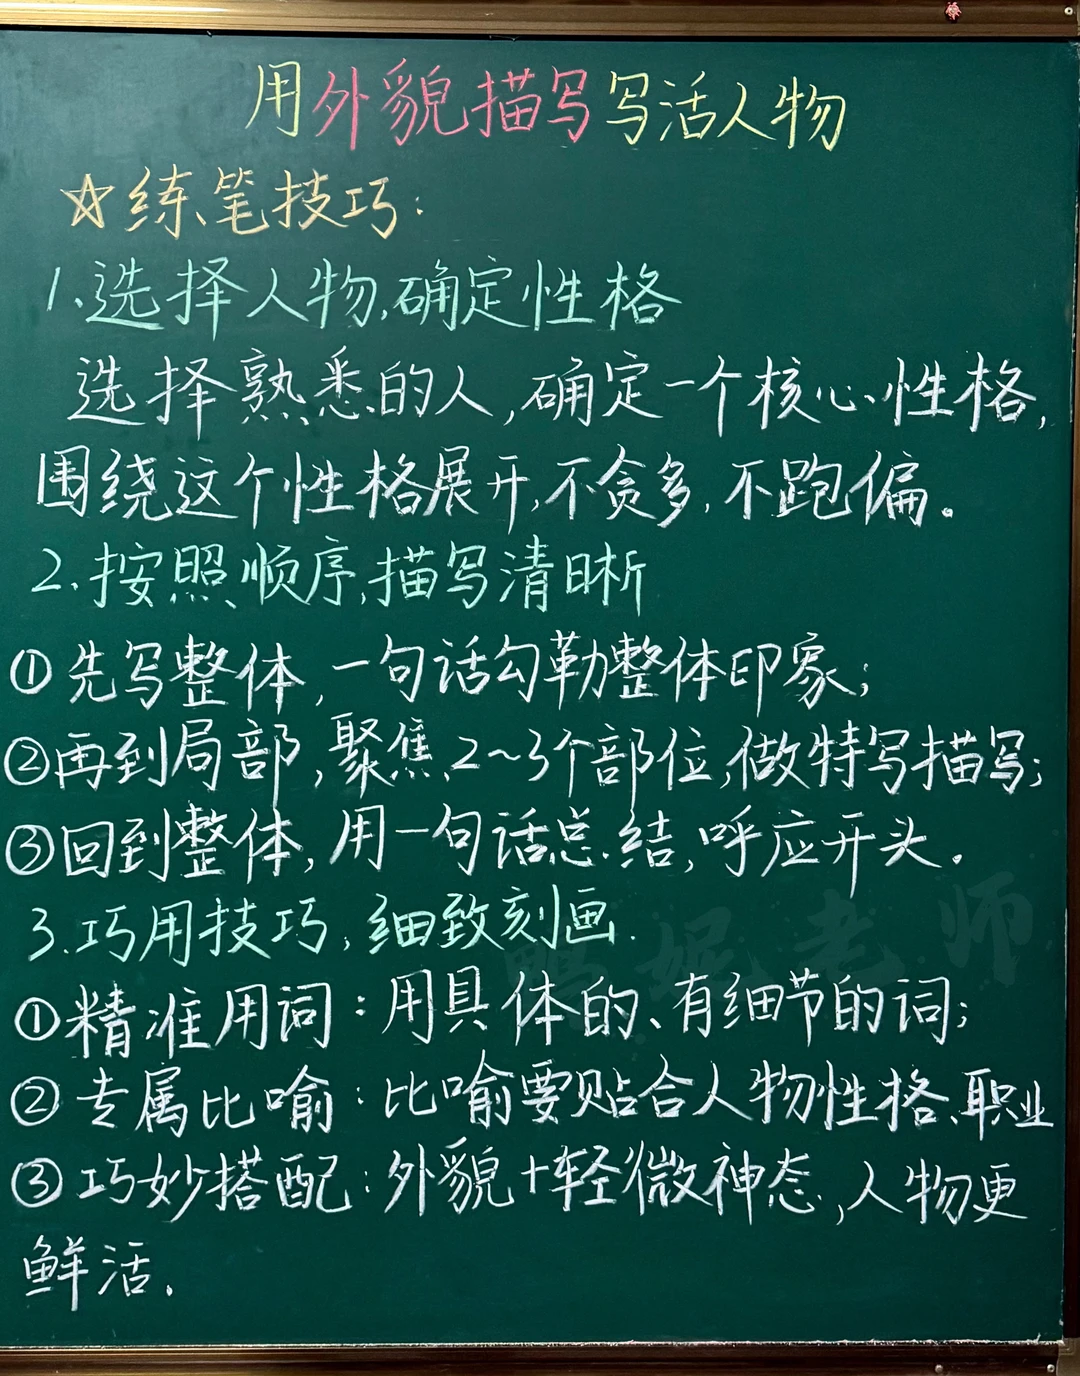 用外貌描写写活人物
☆练笔技巧：
1.选择人物,确定性格
选择熟悉的人,确定一个核心性格,
围绕这个性格展开,不贪多,不跑偏。
2.按照顺序,描写清晰
①先写整体,一句话勾勒整体印象;
②再到局部,聚焦2~3个部位,做特写描写;
③回到整体,用一句话总结,呼应开头.
3.巧用技巧,细致刻画.
①精准用词：用具体的、有细节的词;
②专属比喻：比喻要贴合人物性格、职业
③巧妙搭配：外貌+轻微神态,人物更
鲜活.